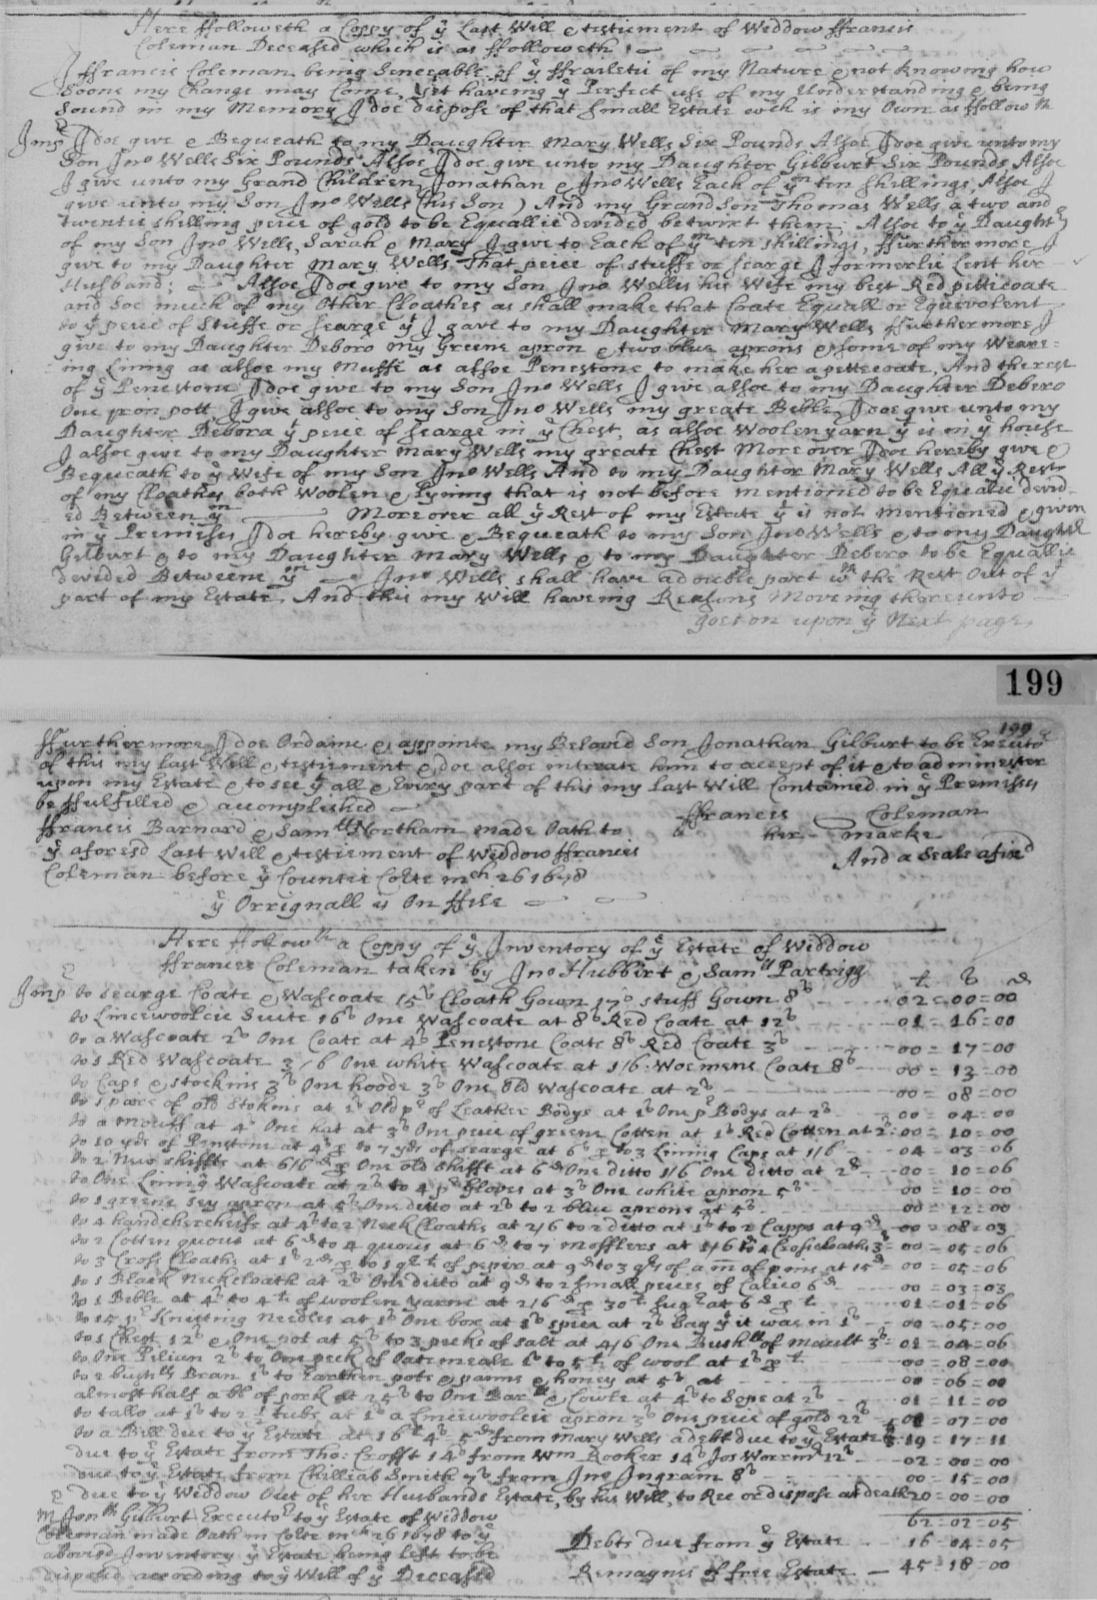 Here ffolloweth a Coppy of yͤ Last Will & testiement of Weddow ffrancis
Coleman Deceased which is as ffolloweth
I ffrancis Coleman being Senceable of yͤ ffrailetie of my Nature & not knowing how
Soone my Change may Come, yet haveing yͤ Perfect use of my Understanding & being
Sound in my Memory I doe dispose of that Small Estate wch is my Own as ffollowth
Impͬ I doe give & Bequeath to my Daughter Mary Wells Six Pounds Allsoe I doe give unto my
Son Jnoͦ Wells Six Pounds Allsoe I doe give unto my Daughter Gilburt Six Pounds Allsoe
I give unto my Grand Children Jonathan & Jnoͦ Wells Each of yͫ ten shillings, Allsoe I
give unto my Son Jnoͦ Wells (his Son) And my GrandSon Thomas Wells a two and
twentie shilling peice of gold to be Equallie devided betwixt them, Allsoe to yͤ Daughtͬs
of my Son Jnoͦ Wells, Sarah & Mary I give to Each of yͫ ten shillings, ffurthermore I
give to my Daughter Mary Wells That peice of stuffe or searge I formerlie Lent her
Husband: Allsoe I doe give to my Son Jnoͦ Wells his Wife my best Red petticoate
and Soe much of my Other Cloathes as shall make that Coate Equall or Equevolent
to yͤ peice of Stuffe or searge yͭ I gave to my Daughter Mary Wells ffurthermore I
give to my Daughter Deboro my Greene apron & two blue aprons & some of my Weare=
ing Lining as allsoe my Muffe as allsoe Penestone to make her a petticoate, And the rest
of yͤ Penestone I doe give to my Son Jnoͦ Wells I give allsoe to my Daughter Debero
One Iron pott, I give allsoe to my Son Jnoͦ Wells my greate Bible, I doe give unto my
Daughter Debora yͤ peice of searge in yͤ Chest, as allsoe Woolen yarn yͭ is in yͤ house
I allsoe give to my Daughter Mary Wells my greate Chest Moreover I doe hereby give &
Bequeath to yͤ Wife of my Son Jnoͦ Wells And to my Daughter Mary Wells All yͤ Rest
of my Cloathes both Woolen & Lyning that is not before mentioned to be Equalie devid-
ed Between yͫ Moreover all yͤ Rest of my Estate yͭ is not mentioned & given
in yͤ Premises I doe hereby give & Bequeath to my Son Jnoͦ Wells & to my Daughtͬ
Gilburt & to my Daughter Mary Wells & to my Daughter Debero to be Equallie
devided Betweene yͫ Jnoͦ Wells shall have a double part wͭͪ the Rest Out of yͭ
part of my Estate, And this my Will haveing Reasons Moveing thereunto
goes on upon yͤ Next page
199
199
ffurthermore I doe Ordaine & appointe my Beloved Son Jonathan Gilburt to be Executoͬ
of this my last Will & testiement & doe allsoe intreate him to accept of it & to adminester
upon my Estate & to see yͭ all & Every part of this my Last Will Contained in yͤ Premises
be ffulfilled & accomplished
ffrancis Coleman
her marke
And a Seale afixͩ
ffrancis Barnard & Samͧ Northam made Oath to
yͤ aforesd Last Will & testiement of Weddow ffrances
Coleman before yͤ Countie Corte mch 26 1678
yͤ Orrignall is On ffile
Here ffollowth a Coppy of yͤ Inventory of yͤ Estate of Widdow
ffrances Coleman taken by Jnoͦ Hubbirt & Samͧ Partrigg
£ s d
Impͬ to searge Coate & Wascoate 15s Cloath Gown 17s stuff Gown 8s 02=00=00
to Lincewoolcie Suite 16s One Wascoate at 8s Red Coate at 12s 01=16=00
to a Wascoate 2s One Coate at 4s Penestone Coate 8s Red Coate 3s 00=17=00
to 1 Red Wascoate 3/6 One white Wascoate at 1/6 Woemens Coate 8s 00=13=00
to Caps & stockins 3s One hoode 3s One Old Wascoate at 2s 00=08=00
to 1 paire of old Stokins at 1s Old pͬ of Leather Bodys at 1s One pͬ Bodys at 2s 00=04=00
to a mouff at 4s One hat at 3s One peice of greene Cotten at 1s Red Cotten at 2s 00=10=00
to 10 yds of Penstone at 4s p to 7 yds of searge at 6s p to 3 Lining Caps at 1/6 04=03=06
to 2 New shiffts at 6/6d p One old shifft at 6d One ditto 1/6 One ditto at 2s 00=10=06
to One Lining Wascoate at 2s to 4 pͬ Gloves at 3s One white apron 5s 00=10=00
to 1 greene sey apron at 5s One ditto at 2s to 2 blue aprons at 5s 00=12=00
to 4 handchercheifs at 4s to 2 Neck Cloaths at 2/6 to 2 ditto at 1s to 2 Capps at 9d 00=08=03
to 2 Cotten quoifs at 6d to 4 quoifs at 6d to 7 mofflers at 1/6 to 4 Crosscloaths 3s 00=05=06
to 3 Cross Cloaths at 1s 2d p to 1 of pepir at 9d to 3 of a m of pins at 15d 00=05=06
to 1 Black Neckcloath at 2s One ditto at 9d to 2 small peices of Calico 6d 00=03=03
to 1 Bible at 4s to 4 of woolen yarne at 2/6d p 30 sugͬ at 6d p 01=01=06
to 15 Knitting Needles at 1s One box at 1s spice at 2s bag yͭ it was in 1s 00=05=00
to 1 Chest 12s & One pot at 5s to 3 pecks of salt at 4/6 One Bushll of mault 3s 01=04=06
to One Pilion 2s to One peck of Oatemeale 1s to 5 of wool at 1s p 00=08=00
to 2 bushlls Bran 1s to Earthen pots & panns & honey at 5s at 00=06=00
almost half a bl of pork at 25s to One Barͬll & Cowle at 4s to Sope at 2s 01=11=00
to tallo at 1s to 2 tubs at 1s a Lincewoolcie apron 3s One peice of gold 22s 01=07=00
to a Bill due to yͤ Estate at 16£ 4s 5d from Mary Wells a debt due to yͤ Estate 19=17=11
due to yͤ Estate from Tho: Crofft 14s from Wm Rooker 14s Jos Warrinͬ 12s 02=00=00
due to yͤ Estate from Chilliab Smith 7s from Jnoͦ Ingram 8s 00=15=00
due to yͤ Widdow Out of her Husbands Estate, by his Will, to Rec or dispose at death 20=00=00
62=02=05
Mͬ Jonth Gilburt Executoͬ to yͤ Estate of Widdow
Coleman made Oath in Corte mch 26 1678 to yͤ
abovesd Inventory yͤ Estate being left to be
disposed according to yͤ Will of yͤ Deceased
Debts due from yͤ Estate 16=04=05
Remaynes of free Estate 45=18=00